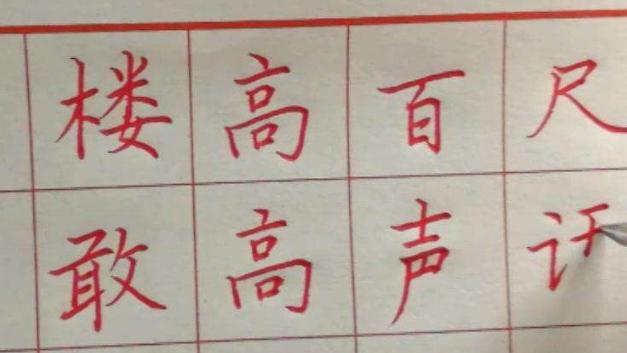 楼高百尺
敢高声